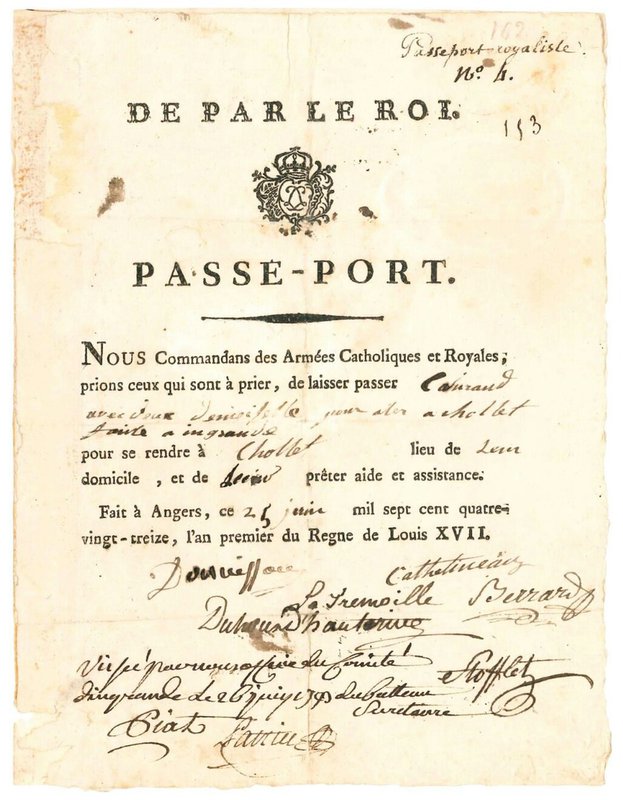 162
Passeport royaliste.
N.º 4.
DE PAR LE ROI.
153
PASSE-PORT.
NOUS Commandans des Armées Catholiques et Royales,
prions ceux qui sont à prier, de laisser passer
avec deux demoiselle pour aler a chollet
a ingrande
pour se rendre à Chollet lieu de leur
domicile, et de leur prêter aide et assistance.
Fait à Angers, ce 25 juin mil sept cent quatre-
vingt-treize, l'an premier du Regne de Louis XVII.
Donnissan Cathelineau
La Tremoille Berrard
Duhoux D'hauterive
Vissé par nous officie du Comité Stofflet
dingrande Le 26 juin 1793
Secretaire
Piat